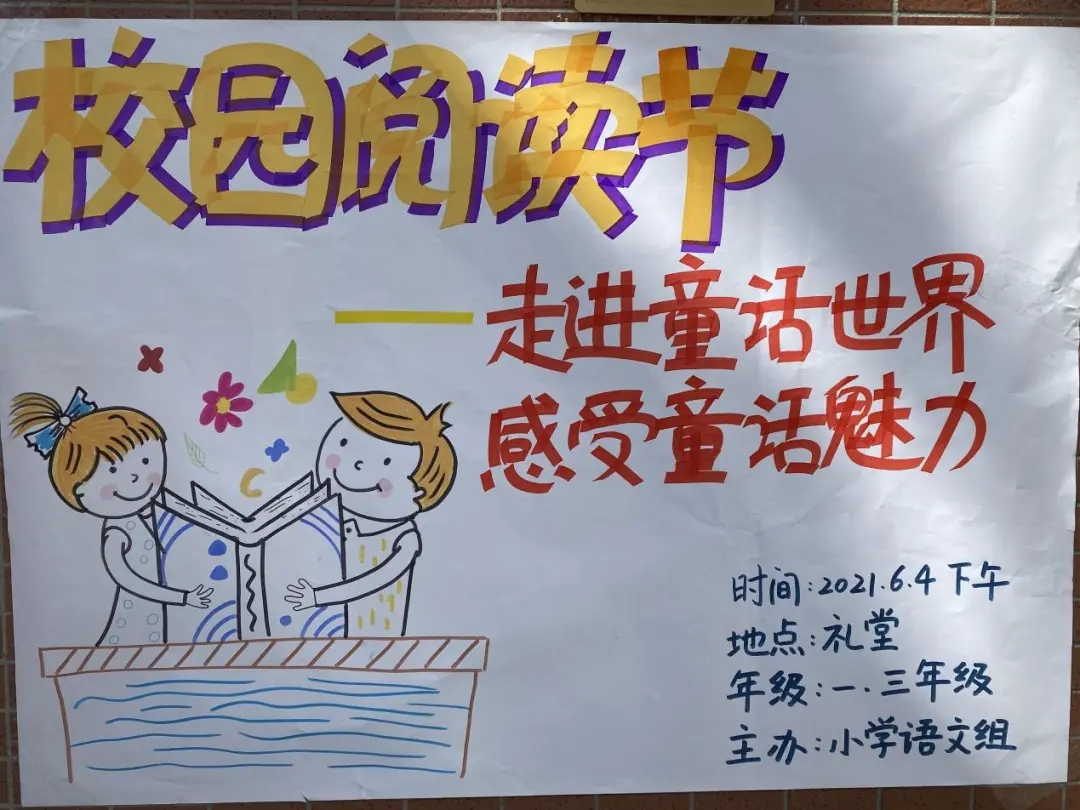 校园阅读节
——走进童话世界
感受童话魅力
时间:2021.6.4下午
地点:礼堂
年级:一.三年级
主办:小学语文组